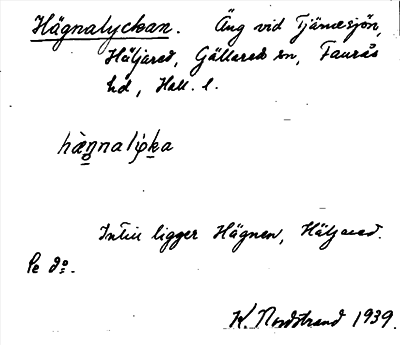 Hägnalyckan. Äng vid Tjärnesjön,
Häljared, Gällared sn, Faurås
hd, Hall. l.
hæŋnalyka
Intill ligger Hägnen, Häljared.
Se d:o.
K. Nordstrand 1939.